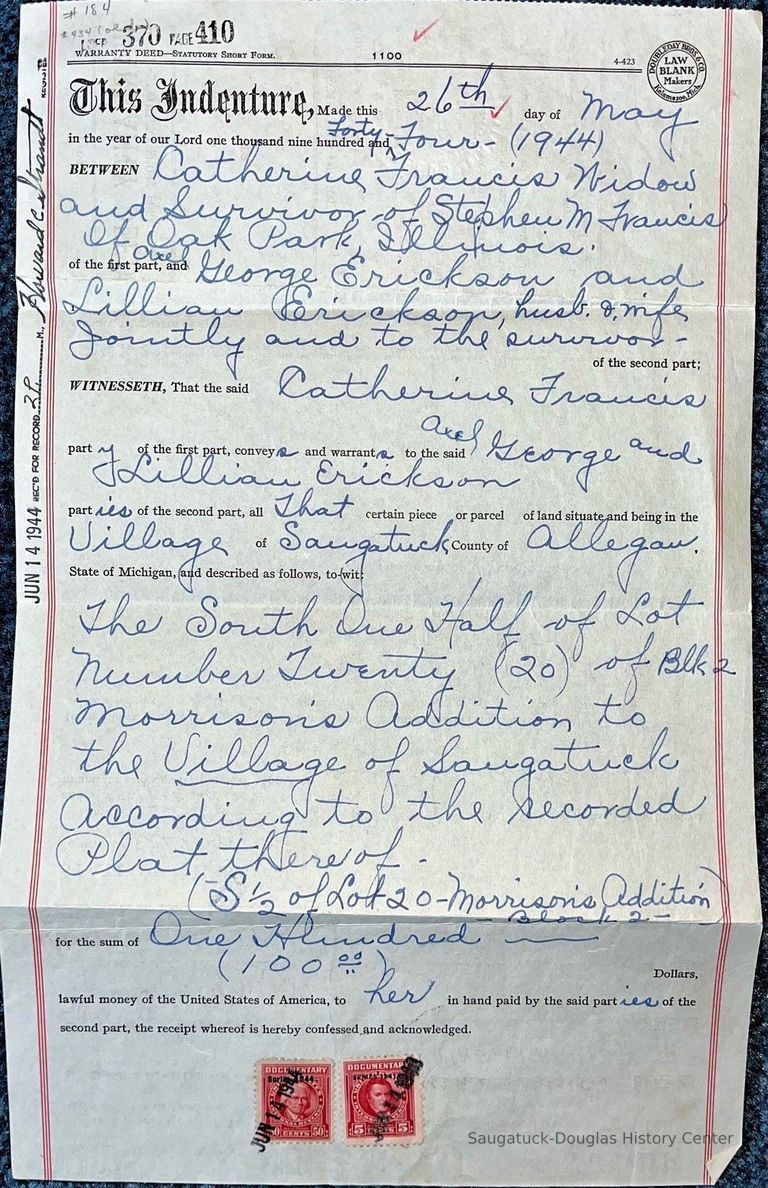 # 184
370 PAGE 410
WARRANTY DEED—STATUTORY SHORT FORM.
1100
4-423
DOUBLEDAY BROS. & CO.
LAW
BLANK
Makers
Kalamazoo, Mich.
This Indenture, Made this 26th day of May
in the year of our Lord one thousand nine hundred and Forty-Four- (1944)
BETWEEN Catherine Francis Widow
and Survivor of Stephen M Francis
Of Oak Park, Illinois.
of the first part, and Axel George Erickson and
Lillian Erickson, husb. & wife
Jointly and to the survivor-
of the second part;
WITNESSETH, That the said Catherine Francis
part y of the first part, conveys and warrants to the said Axel George and
Lillian Erickson
parties of the second part, all That certain piece or parcel of land situate and being in the
Village of Saugatuck County of Allegan.
State of Michigan, and described as follows, to-wit:
The South One Half of Lot
Number Twenty (20) of Blk 2
Morrison's Addition to
the Village of Saugatuck
According to the recorded
Plat thereof.
(S 1/2 of Lot 20-Morrison's Addition)
- Block 2 -
for the sum of One Hundred
(100 00)
Dollars,
lawful money of the United States of America, to her in hand paid by the said parties of the
second part, the receipt whereof is hereby confessed and acknowledged.
DOCUMENTARY
Series 1944
50 CENTS 50
JUN 14 1944
DOCUMENTARY
5 5
JUN 14 1944 REC'D FOR RECORD M.,
REGISTER
Saugatuck-Douglas History Center